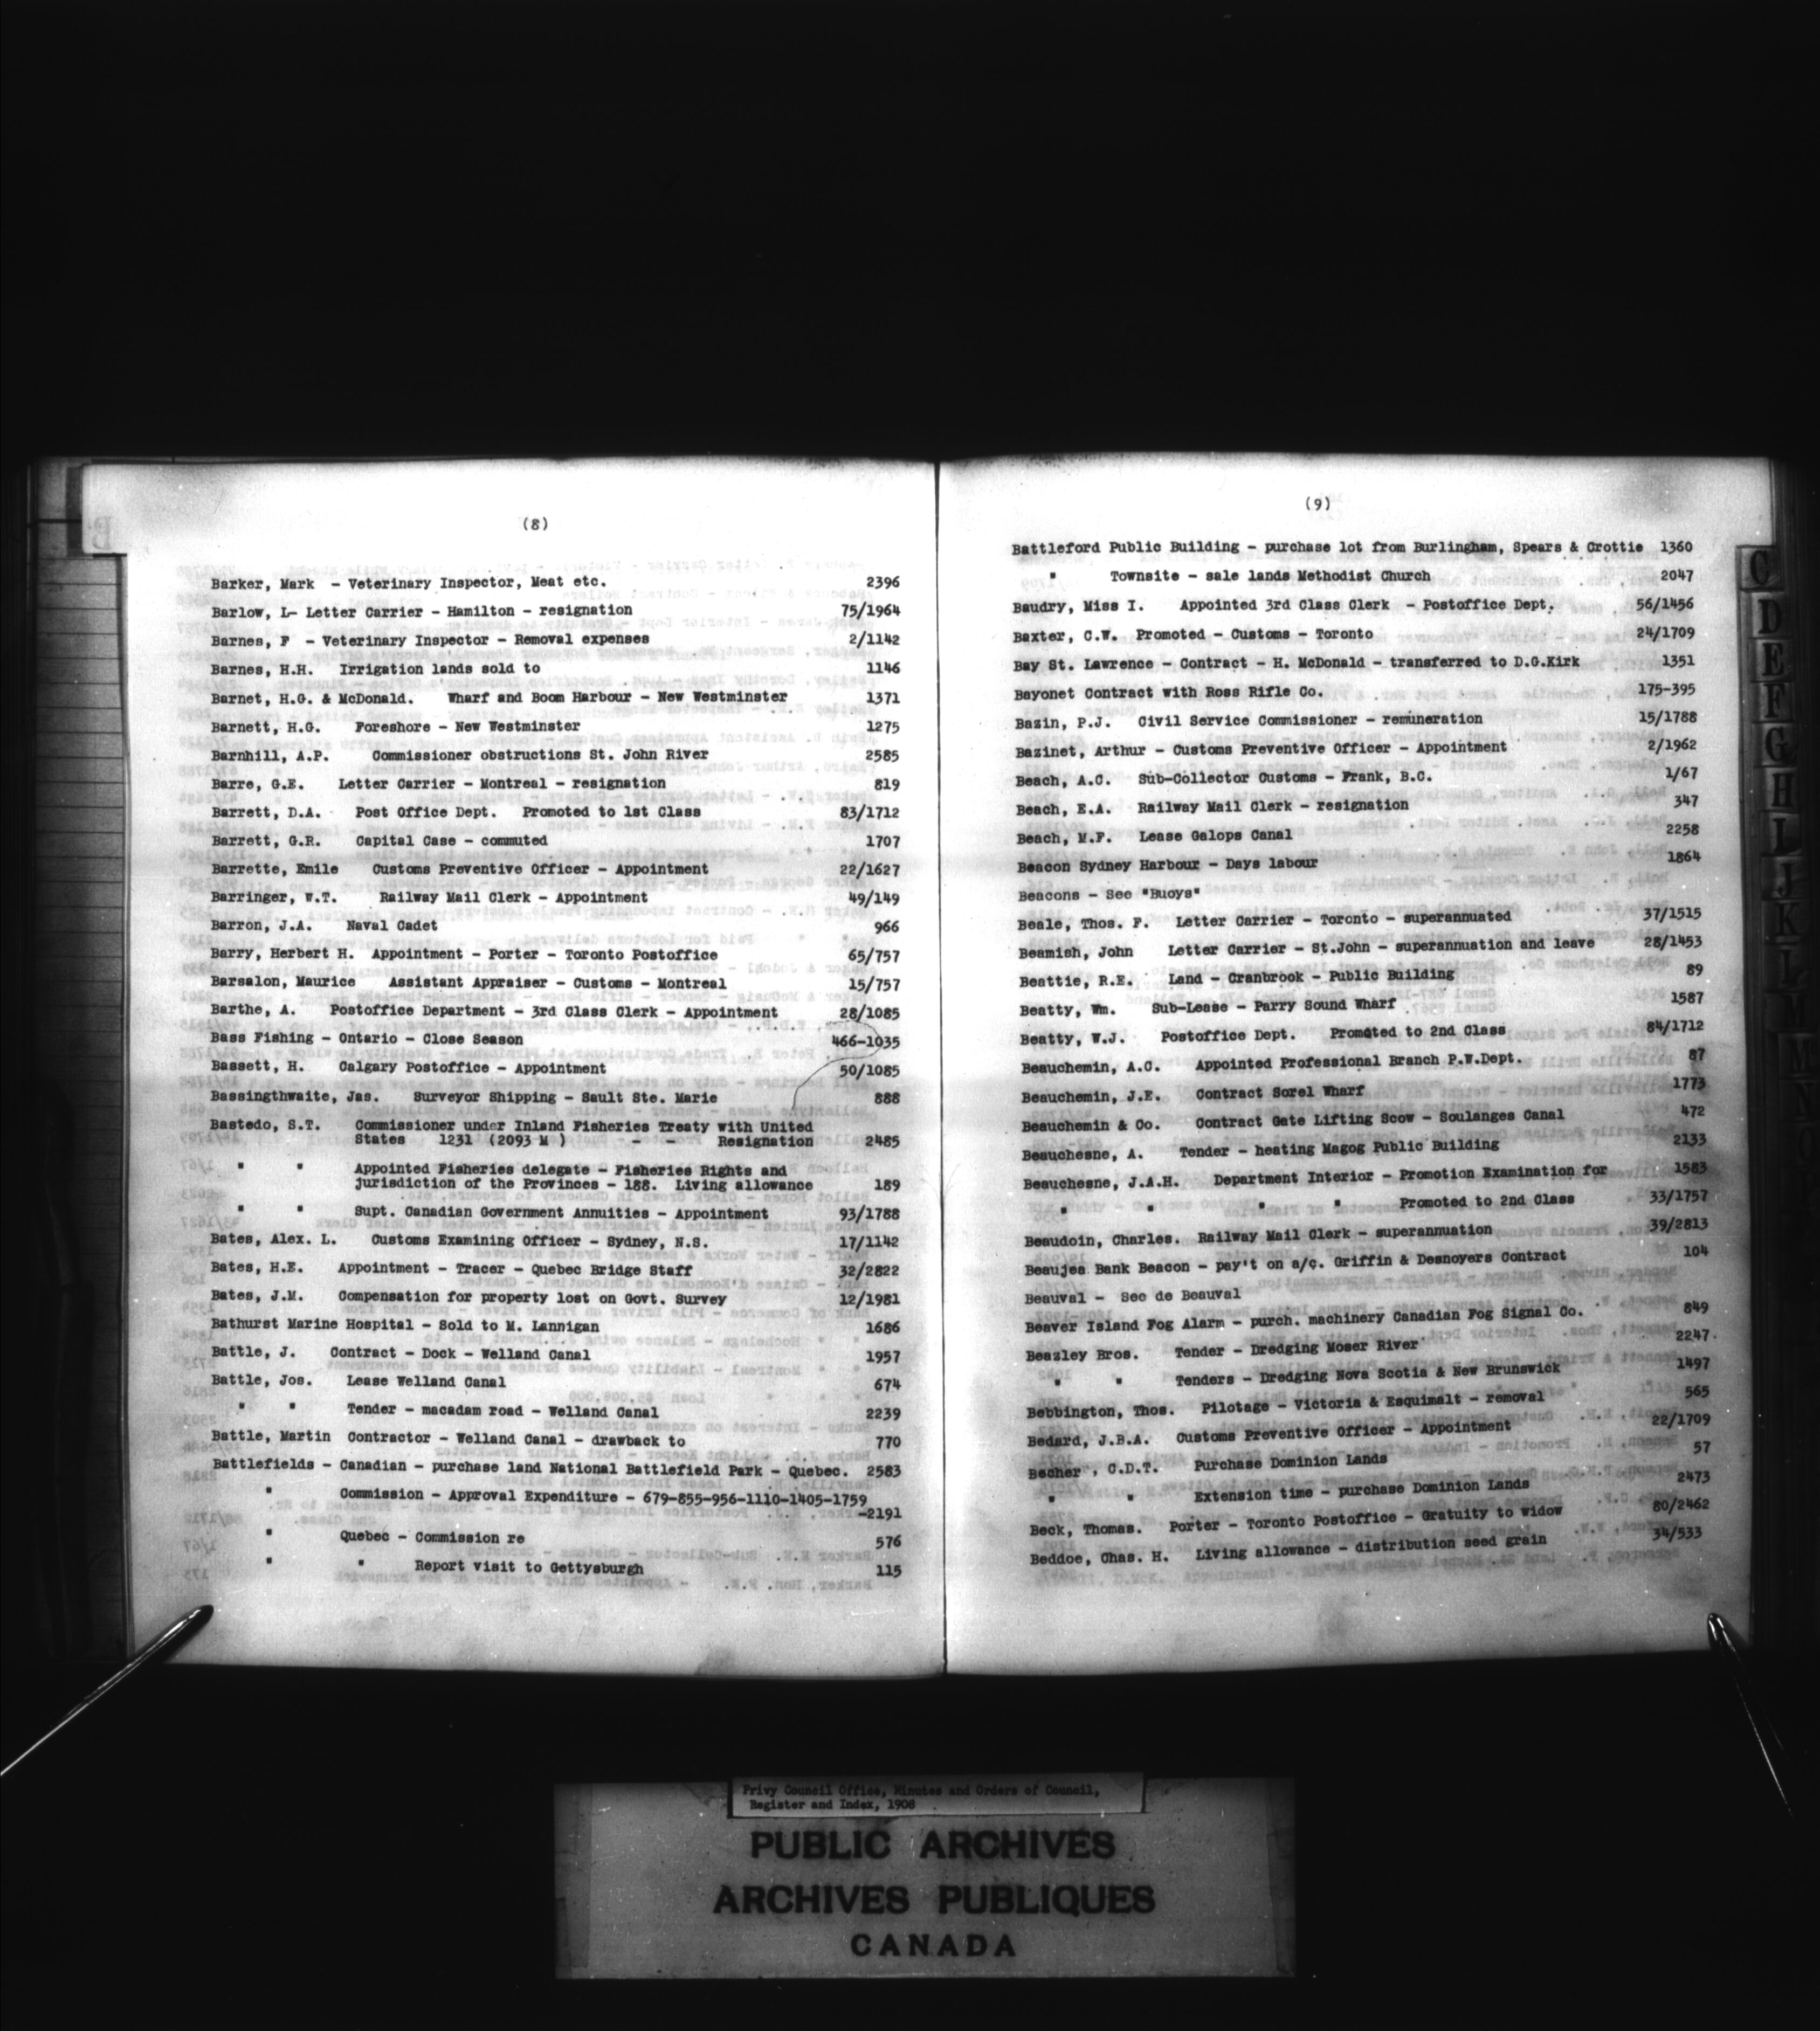 (8)
Barker, Mark - Veterinary Inspector, Meat etc. 2396
Barlow, L- Letter Carrier - Hamilton - resignation 75/1964
Barnes, F - Veterinary Inspector - Removal expenses 2/1142
Barnes, H.H. Irrigation lands sold to 1146
Barnet, H.G. & McDonald. Wharf and Boom Harbour - New Westminster 1371
Barnett, H.G. Foreshore - New Westminster 1275
Barnhill, A.P. Commissioner obstructions St. John River 2585
Barre, G.E. Letter Carrier - Montreal - resignation 819
Barrett, D.A. Post Office Dept. Promoted to 1st Class 83/1712
Barrett, G.R. Capital Case - commuted 1707
Barrette, Emile Customs Preventive Officer - Appointment 22/1627
Barringer, W.T. Railway Mail Clerk - Appointment 49/149
Barron, J.A. Naval Cadet 966
Barry, Herbert H. Appointment - Porter - Toronto Postoffice 65/757
Barsalon, Maurice Assistant Appraiser - Customs - Montreal 15/757
Barthe, A. Postoffice Department - 3rd Class Clerk - Appointment 28/1085
Bass Fishing - Ontario - Close Season 466-1035
Bassett, H. Calgary Postoffice - Appointment 50/1085
Bassingthwaite, Jas. Surveyor Shipping - Sault Ste. Marie 888
Bastedo, S.T. Commissioner under Inland Fisheries Treaty with United
States 1231 (2093 M ) - - Resignation 2485
" " Appointed Fisheries delegate - Fisheries Rights and
jurisdiction of the Provinces - 188. Living allowance 189
" " Supt. Canadian Government Annuities - Appointment 93/1788
Bates, Alex. L. Customs Examining Officer - Sydney, N.S. 17/1142
Bates, H.E. Appointment - Tracer - Quebec Bridge Staff 32/2822
Bates, J.M. Compensation for property lost on Govt. Survey 12/1981
Bathurst Marine Hospital - Sold to M. Lannigan 1686
Battle, J. Contract - Dock - Welland Canal 1957
Battle, Jos. Lease Welland Canal 674
" " Tender - macadam road - Welland Canal 2239
Battle, Martin Contractor - Welland Canal - drawback to 770
Battlefields - Canadian - purchase land National Battlefield Park - Quebec. 2583
" Commission - Approval Expenditure - 679-855-956-1110-1405-1759
-2191
" Quebec - Commission re 576
" " Report visit to Gettysburgh 115
(9)
Battleford Public Building - purchase lot from Burlingham, Spears & Crottie 1360
" Townsite - sale lands Methodist Church 2047
Baudry, Miss I. Appointed 3rd Class Clerk - Postoffice Dept. 56/1456
Baxter, C.W. Promoted - Customs - Toronto 24/1709
Bay St. Lawrence - Contract - H. McDonald - transferred to D.G.Kirk 1351
Bayonet Contract with Ross Rifle Co. 175-395
Bazin, P.J. Civil Service Commissioner - remuneration 15/1788
Bazinet, Arthur - Customs Preventive Officer - Appointment 2/1962
Beach, A.C. Sub-Collector Customs - Frank, B.C. 1/67
Beach, E.A. Railway Mail Clerk - resignation 347
Beach, M.F. Lease Galops Canal 2258
Beacon Sydney Harbour - Days labour 1864
Beacons - See "Buoys"
Beale, Thos. F. Letter Carrier - Toronto - superannuated 37/1515
Beamish, John Letter Carrier - St.John - superannuation and leave 28/1453
Beattie, R.E. Land - Cranbrook - Public Building 89
Beatty, Wm. Sub-Lease - Parry Sound Wharf 1587
Beatty, W.J. Postoffice Dept. Promoted to 2nd Class 84/1712
Beauchemin, A.C. Appointed Professional Branch P.W.Dept. 87
Beauchemin, J.E. Contract Sorel Wharf 1773
Beauchemin & Co. Contract Gate Lifting Scow - Soulanges Canal 472
Beauchesne, A. Tender - heating Magog Public Building 2133
Beauchesne, J.A.H. Department Interior - Promotion Examination for 1583
" " " " Promoted to 2nd Class 33/1757
Beaudoin, Charles. Railway Mail Clerk - superannuation 39/2813
Beaujea Bank Beacon - pay't on a/c. Griffin & Desnoyers Contract 104
Beauval - See de Beauval
Beaver Island Fog Alarm - purch. machinery Canadian Fog Signal Co. 849
Beazley Bros. Tender - Dredging Moser River 2247
" " Tenders - Dredging Nova Scotia & New Brunswick 1497
Bebbington, Thos. Pilotage - Victoria & Esquimalt - removal 565
Bedard, J.B.A. Customs Preventive Officer - Appointment 22/1709
Becher , C.D.T. Purchase Dominion Lands 57
" " Extension time - purchase Dominion Lands 2473
Beck, Thomas. Porter - Toronto Postoffice - Gratuity to widow 80/2462
Beddoe, Chas. H. Living allowance - distribution seed grain 34/533
C
D
E
F
G
H
I
J
K
L
M
N
Privy Council Office, Minutes and Orders of Council,
Register and Index, 1908
PUBLIC ARCHIVES
ARCHIVES PUBLIQUES
CANADA